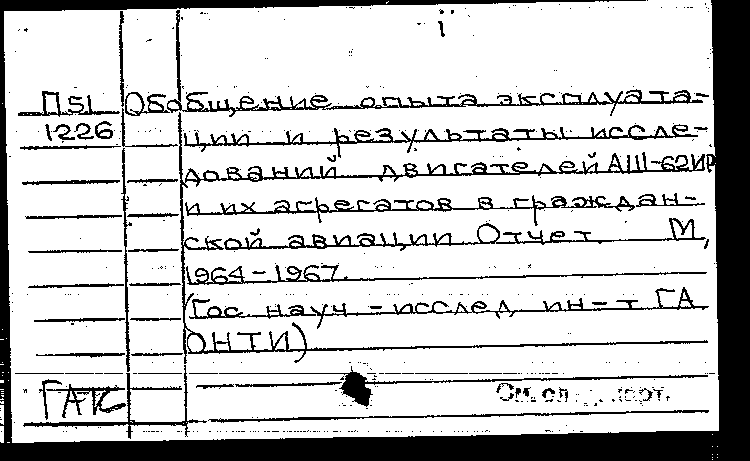 П51 Обобщение опыта эксплуата-
1226 ции и результаты иссле-
дований двигателей АШ-62ИР
и их агрегатов в граждан-
ской авиации Отчет. М,
1964-1967.
(Гос науч-исслед ин-т ГА
ОНТИ)
ГАК См. сл.